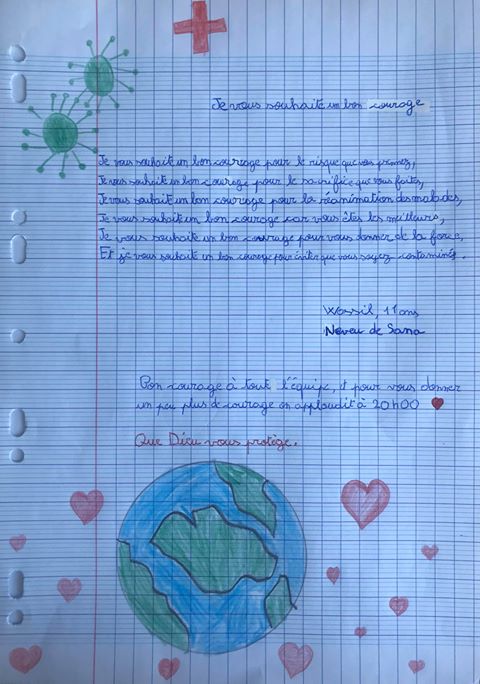 Je vous souhaite un bon courage
Je vous souhaite un bon courage pour le risque que vous prenez,
Je vous souhaite un bon courage pour le sacrifice que vous faites,
Je vous souhait un bon courage pour la réanimation des malades,
Je vous souhaite un bon courage car vous êtes les meilleurs,
Je vous souhaite un bon courage pour vous donner de la force,
Et je vous souhaite un bon courage pour éviter que vous soyez contaminés.
Wassil, 11 ans
Neveu de Sana
Bon courage à tout l'équipe, et pour vous donner
un peu plus de courage on applaudit à 20h00
Que Dieu vous protège.